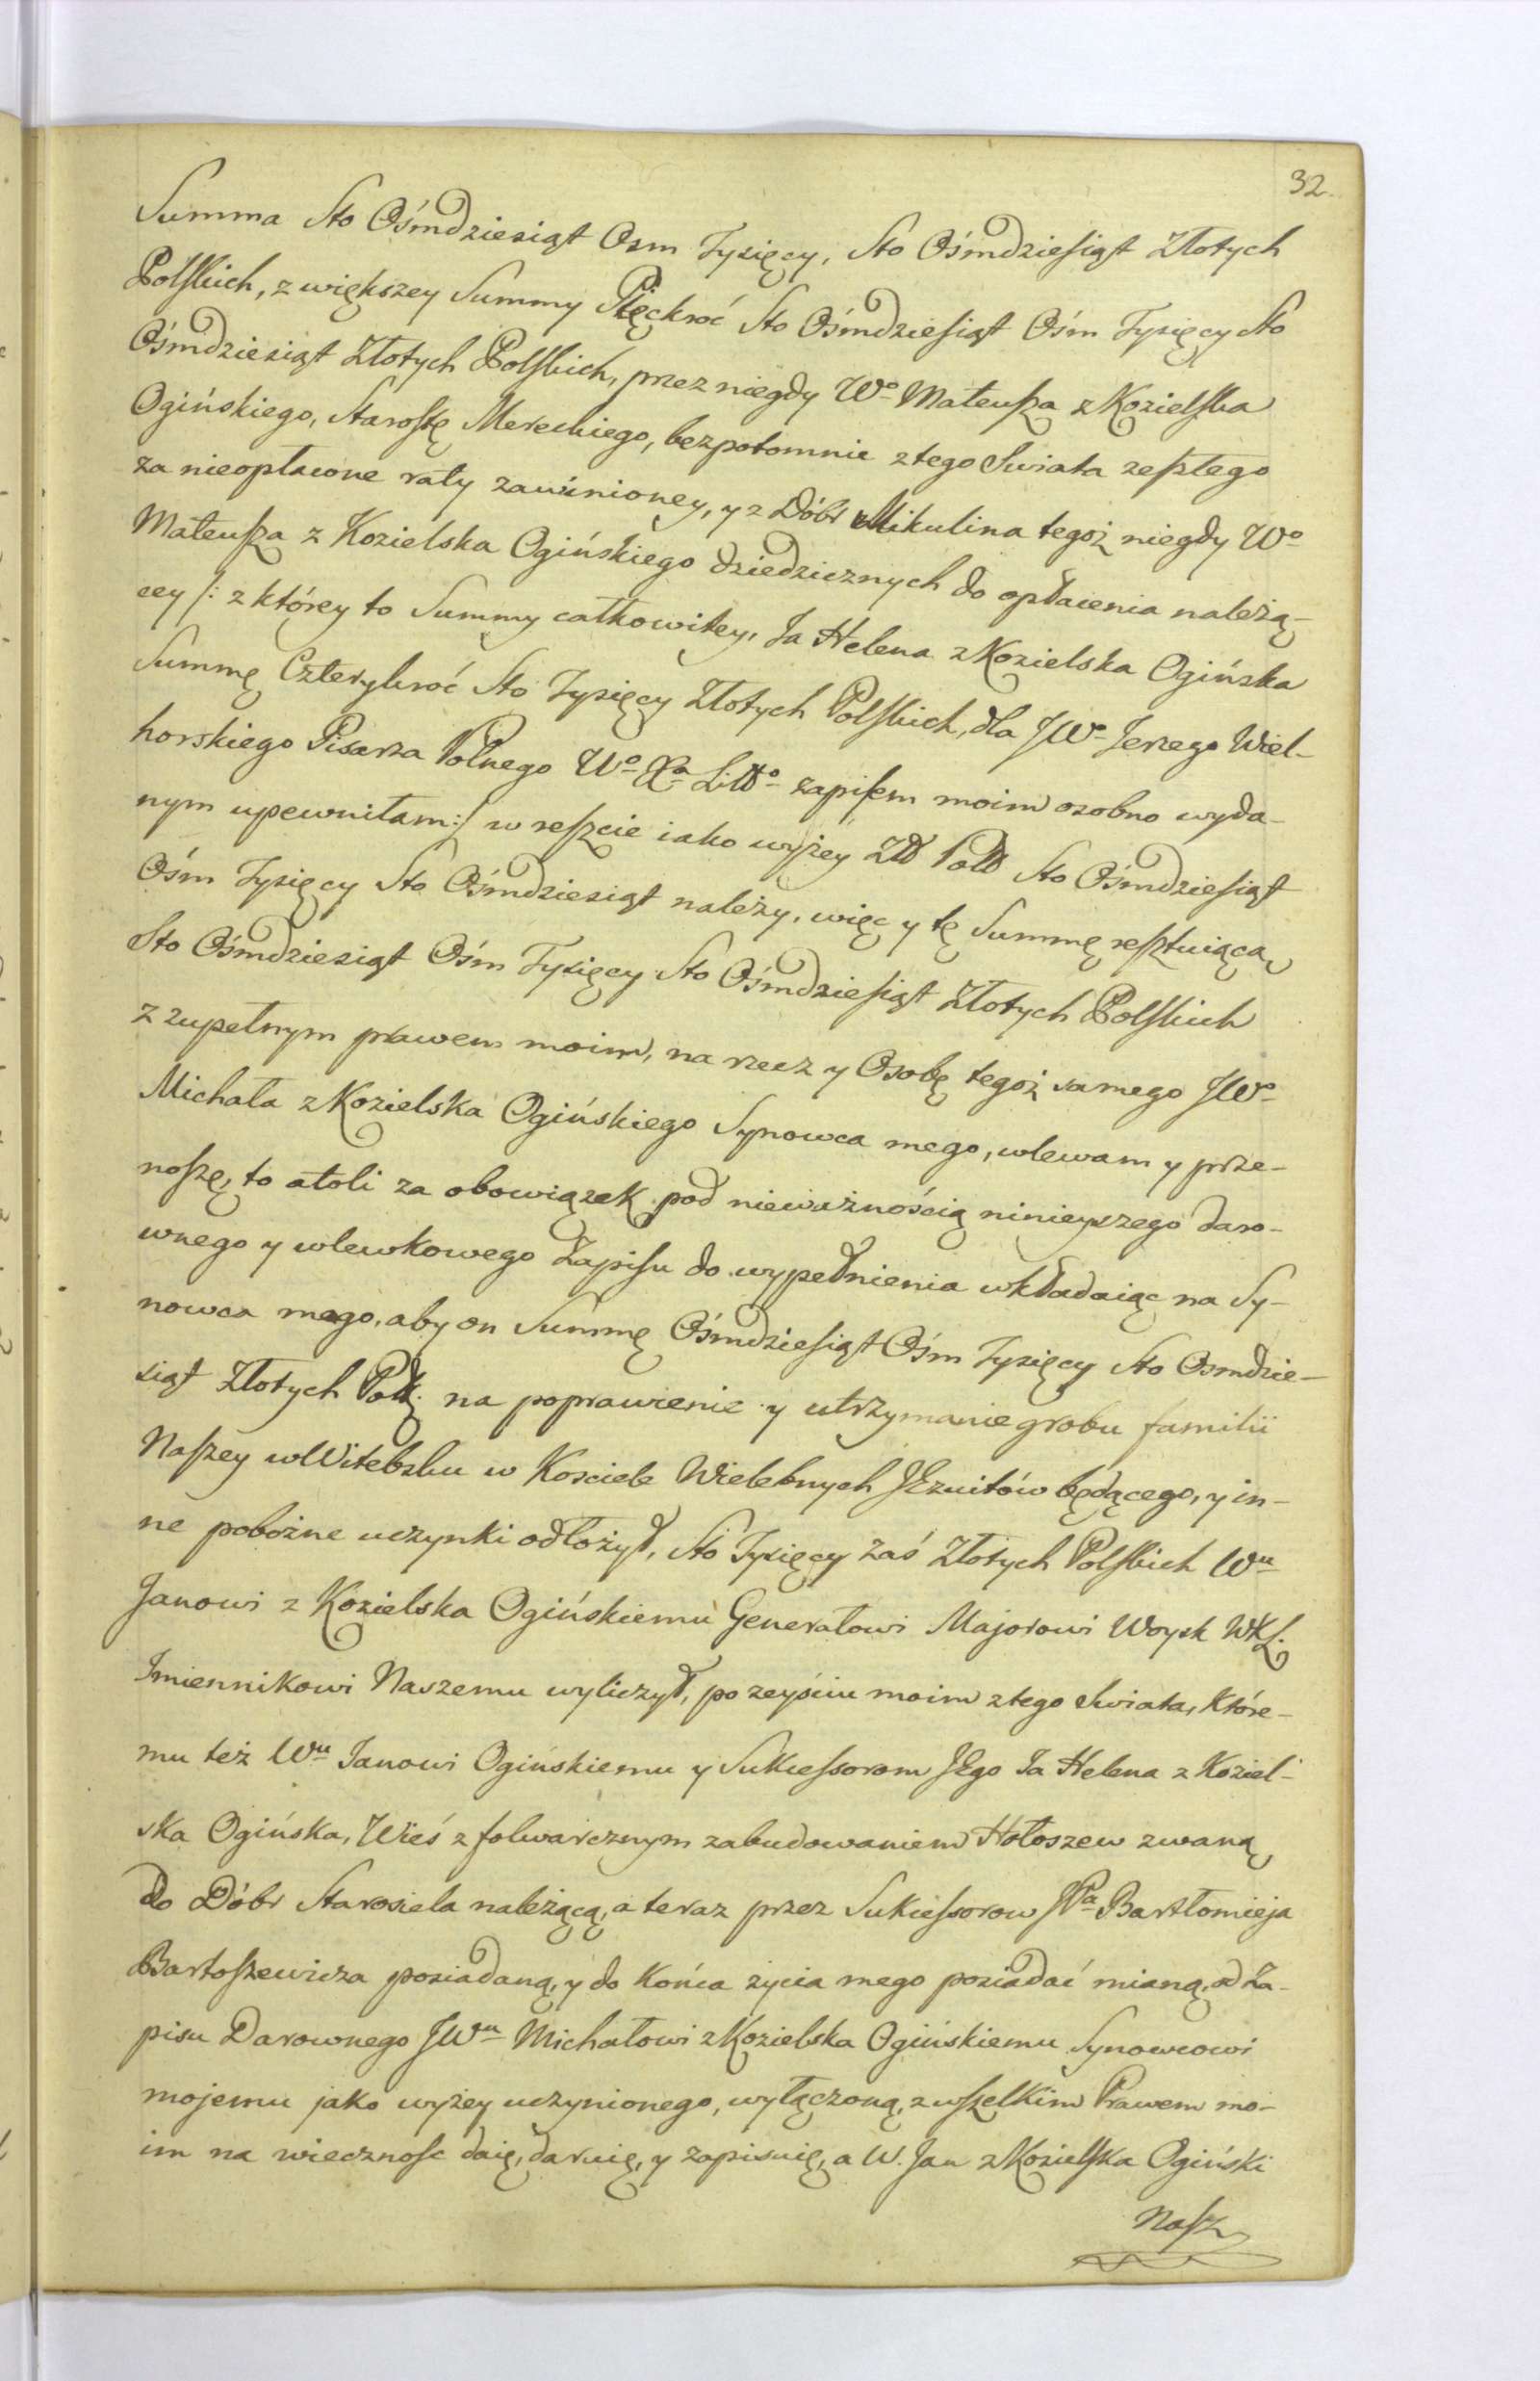 32.
Summa Sto Ośmdziesiąt Osm Tysięcy, Sto Ośmdziesiąt Złotych
Polskich, z większey Summy Pięckroć Sto Ośmdziesiąt Ośm Tysięcy Sto
Ośmdziesiąt Złotych Polskich, przez niegdy Wo Mateusza z Kozielska
Ogińskiego, Starostę Mereckiego, bezpotomnie z tego Swiata zeszłego
za nieopłacone raty zawinioney, y z Dóbr Mikulina tegoż niegdy Wo
Mateusza z Kozielska Ogińskiego dziedzicznych do opłacenia należą-
cey /: z którey to Summy całkowitey, Ja Helena z Kozielska Ogińska
Summę Czterykroć Sto Tysięcy Złotych Polskich, dla JWo Jerzego Wiel-
horskiego Pisarza Polnego Wo Xa Litto zapisem moim osobno wyda-
nym upewniłam :/ w reszcie iako wyżey Złł Poll Sto Ośmdziesiąt
Ośm Tysięcy Sto Ośmdziesiąt należy, więc y tę Summę resztuiącą
Sto Ośmdziesiąt Ośm Tysięcy Sto Ośmdziesiąt Złotych Polskich
z zupełnym prawem moim, na rzecz y Osobę tegoż samego JWo
Michała z Kozielska Ogińskiego Synowca mego, wlewam y prze-
noszę, to atoli za obowiązek pod nieważnością ninieyszego daro-
wnego y wlewkowego Zapisu do wypełnienia wkładaiąc na Sy-
nowca mego, aby on Summę Ośmdziesiąt Ośm Tysięcy Sto Osmdzie-
siąt Złotych Polł. na poprawienie y utrzymanie grobu familii
Naszey w Witebsku w Kosciele Wielebnych JEzuitów będącego, y in-
ne pobożne uczynki odłożył, Sto Tysięcy zaś Złotych Polskich Wu
Janowi z Kozielska Ogińskiemu Generałowi Majorowi Woysk WXL.
Imiennikowi Naszemu wyliczył, po zeyściu moim z tego Swiata, Które-
mu też Wu Janowi Ogińskiemu y Sukcessorom JEgo Ja Helena z Koziel-
ska Ogińska, Wieś z folwarcznym zabudowaniem Hołoszew zwaną,
do Dóbr Starosiela należącą, a teraz przez Sukcessorow JPa Bartłomieja
Bartoszewicza posiadaną, y do Końca życia mego posiadać mianą, od Za-
pisu Darownego JWu Michałowi z Kozielska Ogińskiemu Synowcowi
mojemu jako wyżey uczynionego, wyłączoną, z wszelkim Prawem mo-
im na wiecznosc daię, daruię, y zapisuię, a W. Jan z Kozielska Ogiński
Nasz